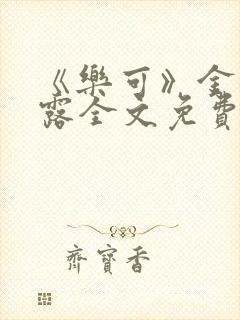 《樂可》金
露全文免費
齊寶香